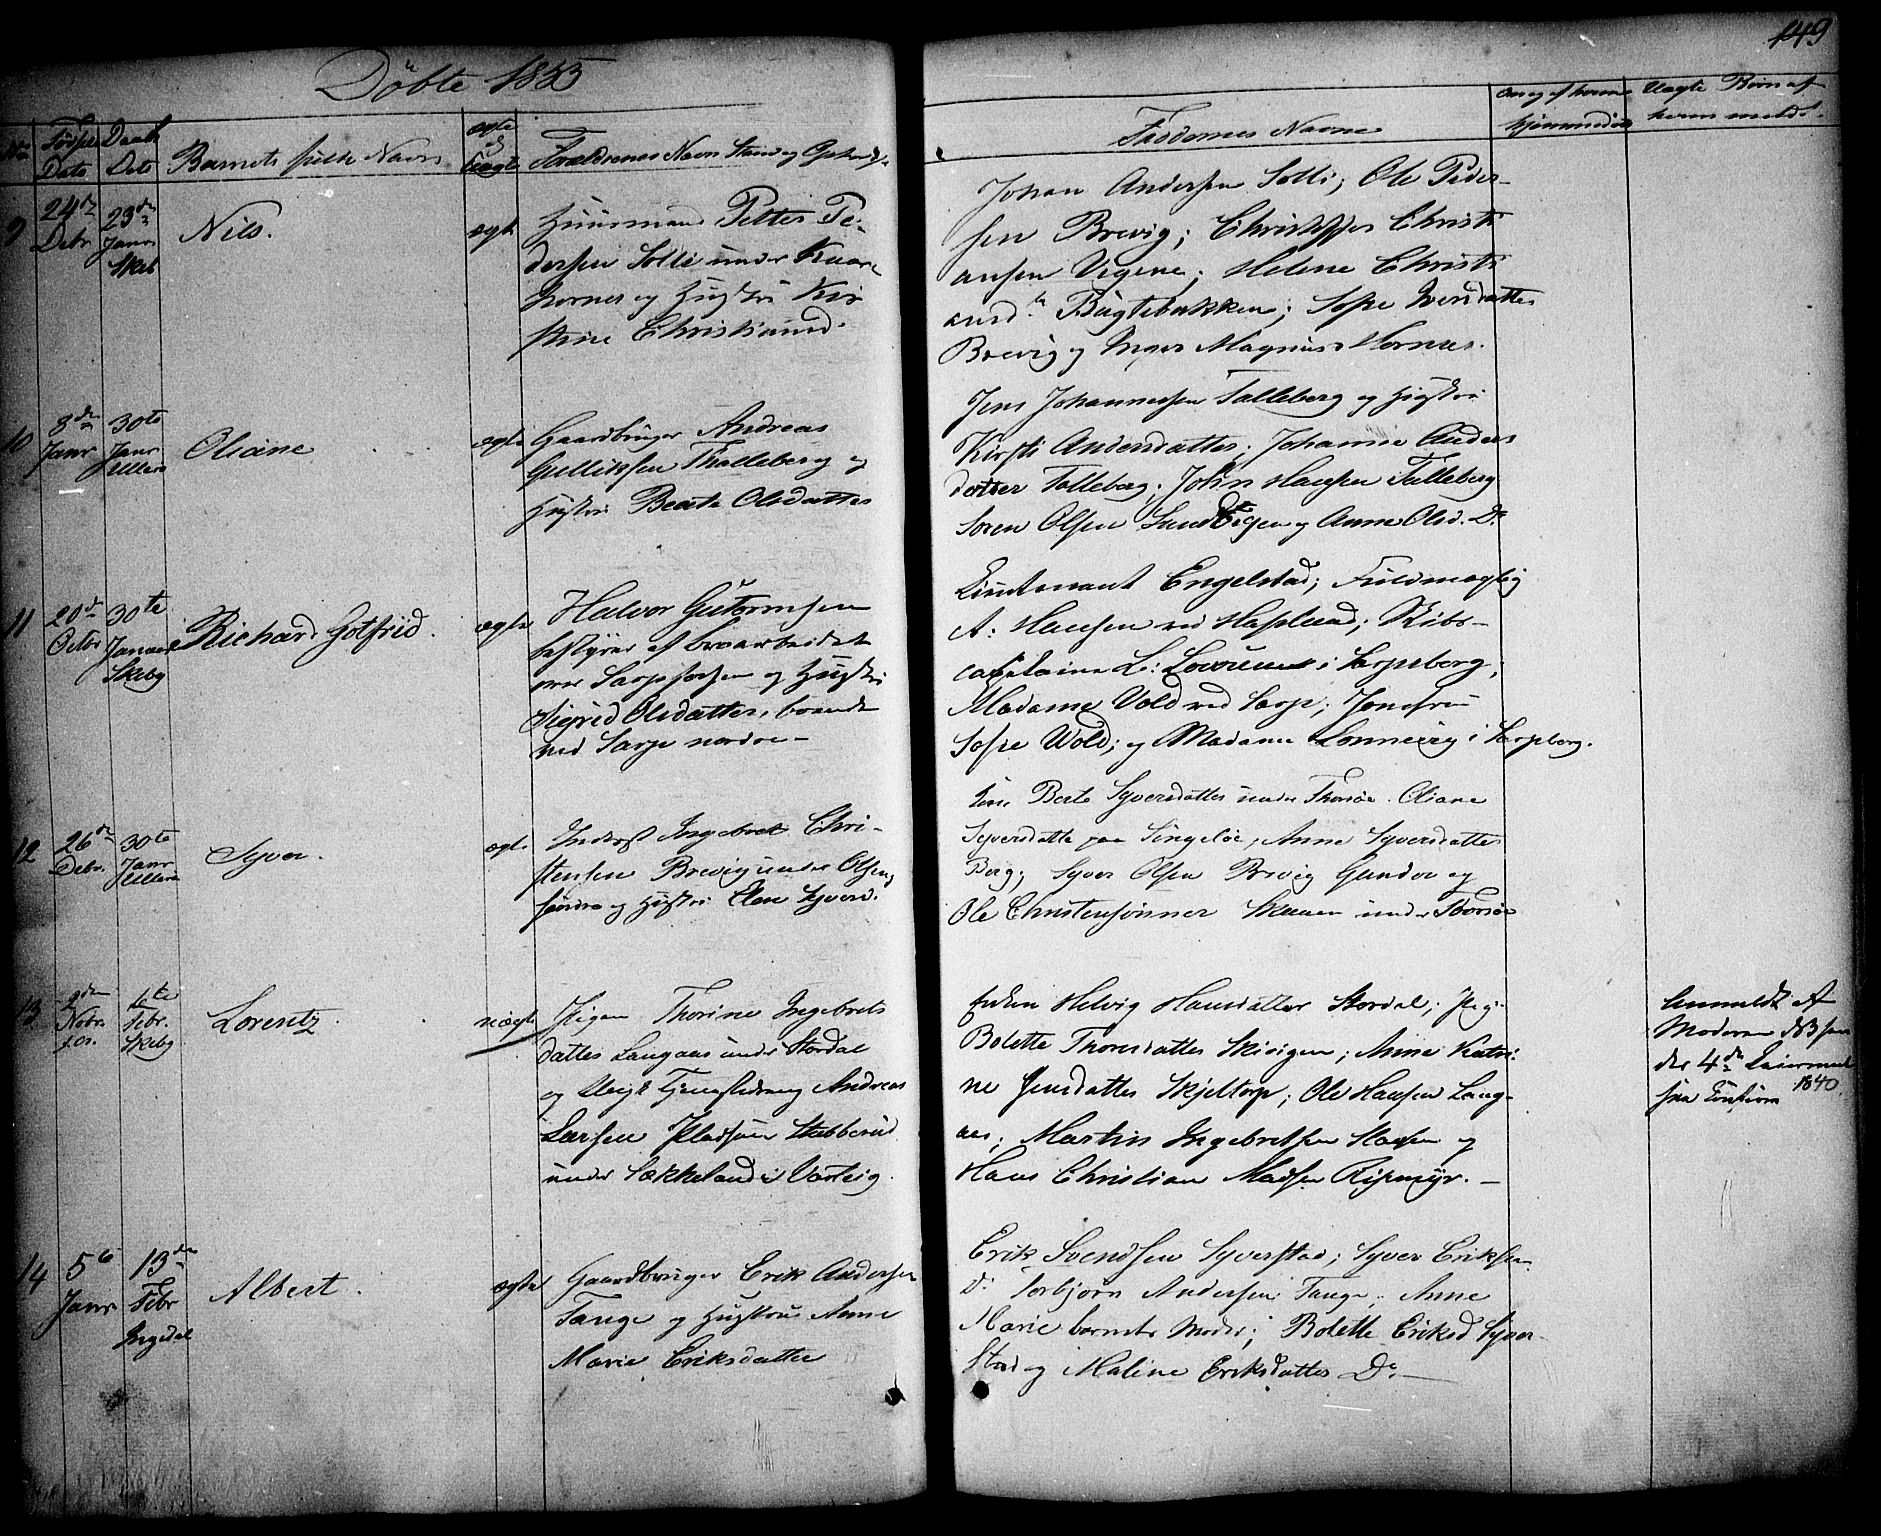 149
Døbte 1853
No Fødsels Dato Daabs Dato Barnets fulde Navn ægte el. uægte Forældrenes Navn Stand og Opholds-
Faddernes Navne
Om og af hvem hjemmedøbt
Uægte Børn af hvem meldt
9
24de Debr
23de Janr Skeb
Nils.
ægte
Huusmand Petter Pe-
dersen Solli under
hornes og Hustru Kir
stine Christiansd.
Johan Andersen Solli; Ole Peder-
sen Brevig; Christoffer Christi
ansen Vigene; Helene Christi
ansdtr Bugtebakken; Sofie Iversdatter
Brevig og Inger Magnusd Hornes.
10
8de Janr
30te Janr Ullerø
Oliane
ægte
Gaardbruger Andreas
Gulliksen Thalleberg og
Hustru Beate Olsdatter
Jens Johannessen Talleberg og Hustru
Kirsti Andersdatter; Johanne Anders
datter Talleberg; John Hansen Talleberg
Søren Olsen Sandvigen og Anne Olsd. Do
11
20de Octbr
30te Januar Skebg
Richard Gotfrid.
ægte
Halvor Gutormsen
bestyrer af Broarbeidet
over Sarpfossen og Hustru
Sigrid Olsdatter, boende
ved Sarp nordre-
Lieutenant Engelstad; Fuldmægtig
A: Hansen ved Hafslund; Skibs-
capitaine L: i Sarpsborg;
Madame Vold ved Sarp; Jomfru
Sofie Wold; og Madame Lonnevig i Sarpsborg.
12
26de Debr.
30te Janr Ullerø
Syver.
ægte
Inderst Ingebret Chri-
stensen Brevig under Olsen
søndre og Hustru Elen Syversd.
Berte Syversdatter under Thorsøe. Oliane
Syversdatter paa Singeløe; Anne Syversdatter
Berg; Syver Olsen Brevig Gunder og
Ole Christensønner Skaaen under Thorsøe
13
2den Nobr. f. A.
6te Febr. Skebg
Lorentz.
uægte
Pigen Thorine Ingebrets
datter Langaas under Stordal
og Ungk Andreas
Larsen Pladsen Stabberud
under Lækkeland i Varteig.
Enken Helvig Hansdatter Stordal; Pig.
Bolette Thoresdatter Skivigen; Anne Katri-
ne Jensdatter Skjeltorp; Ole Hansen Lang-
aas; Martin Ingebretsen og
Hans Christian Madsen Ripmyr. -
Anmeldt af
Moderen
der 4de
fra 1840
14
5te Janr
13de Febr Ingedal
Albert.
ægte
Gaardbruger Erik Andersen
Tange og Hustrue Anne
Marie Eriksdatter
Erik Svendsen Syverstad; Syver Eriksen
Do Torbjørn Andersen Tange; Anne
Marie barnets Moder; Bolette Eriksd Syver-
stad og Maline Eriksdatter Do -